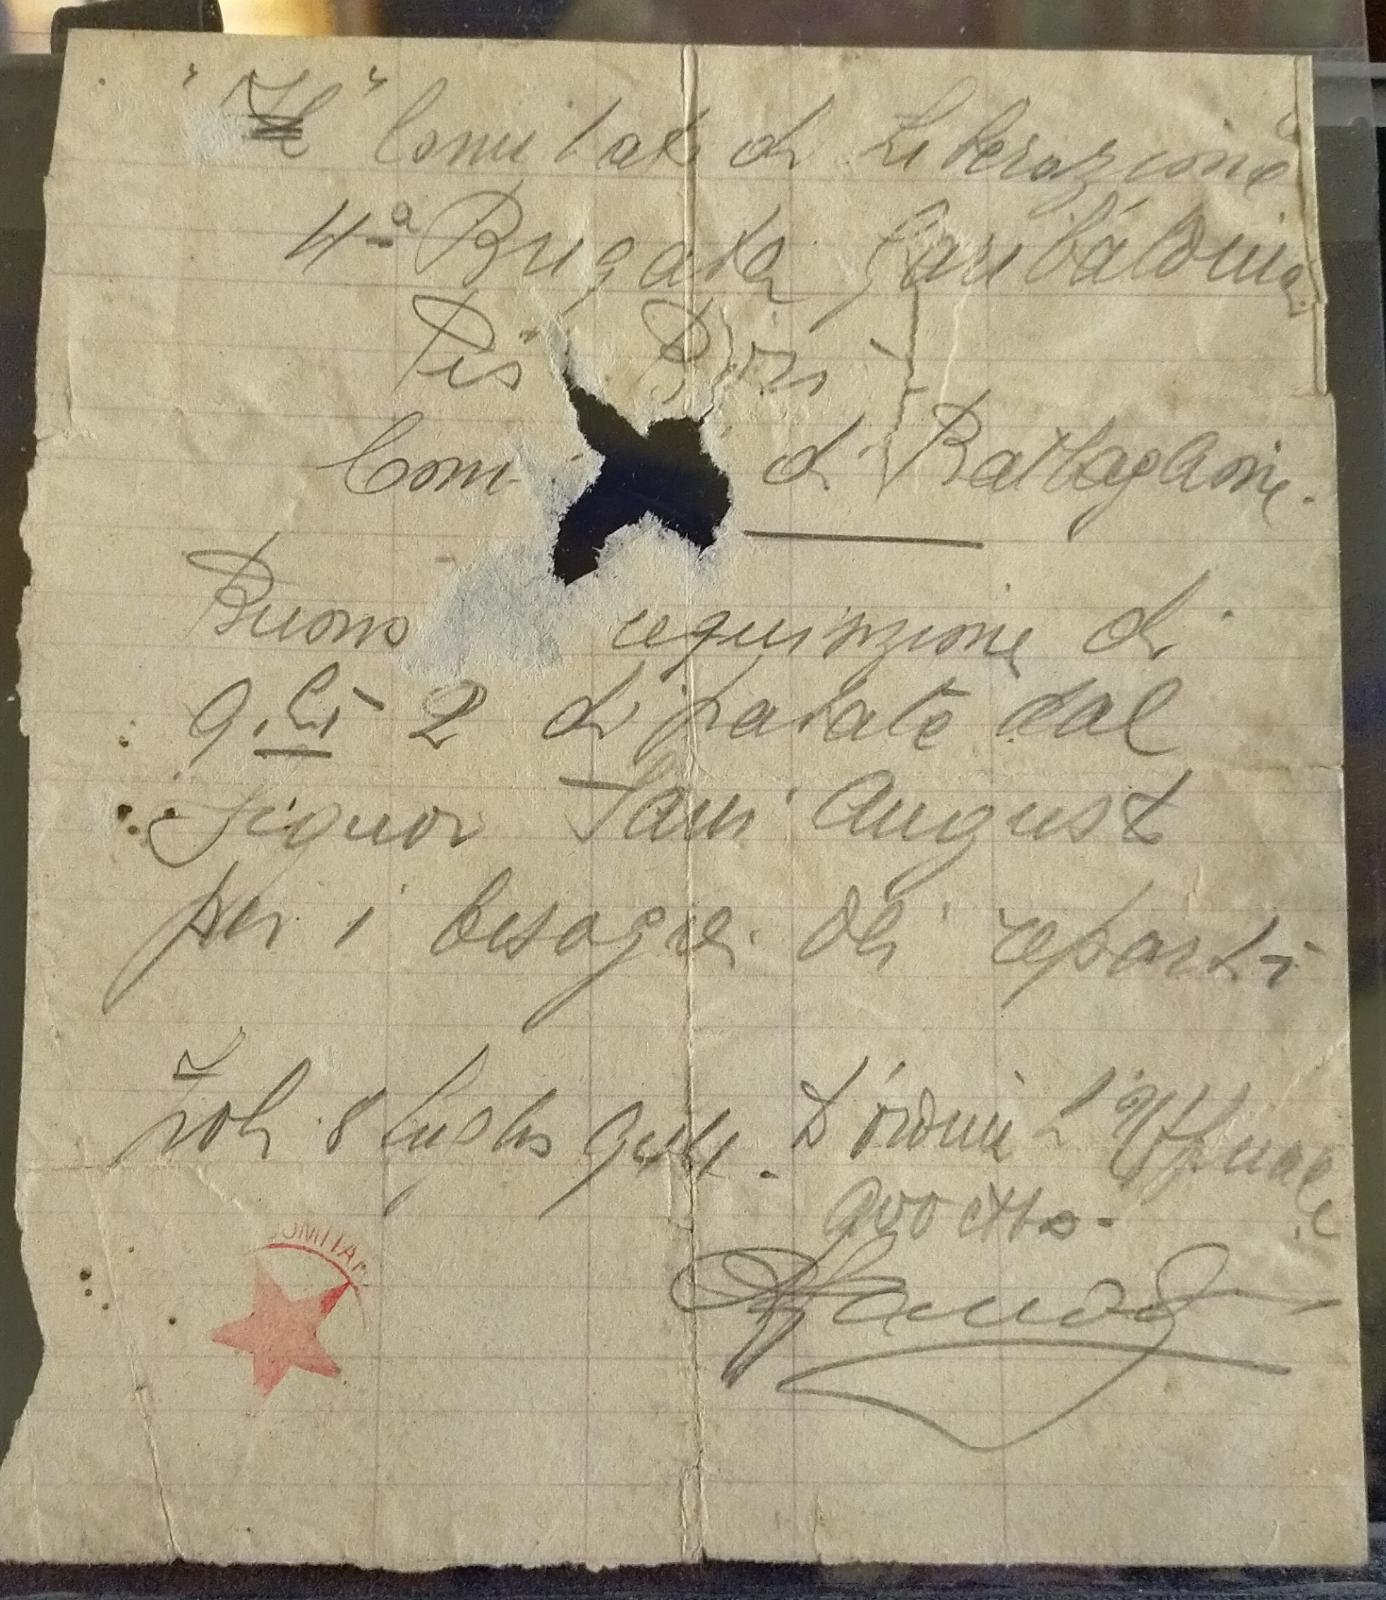 " Il " Comitato di Liberazione
4ª Brigata Garibaldina
Pio Borri
Com di Battaglione.
Buono requisizione di
q.li 2 di patate dal
Signor August
per i bisogni dei reparti
8 Luglio 944. D'ordine L'Ufficiale
OMITA